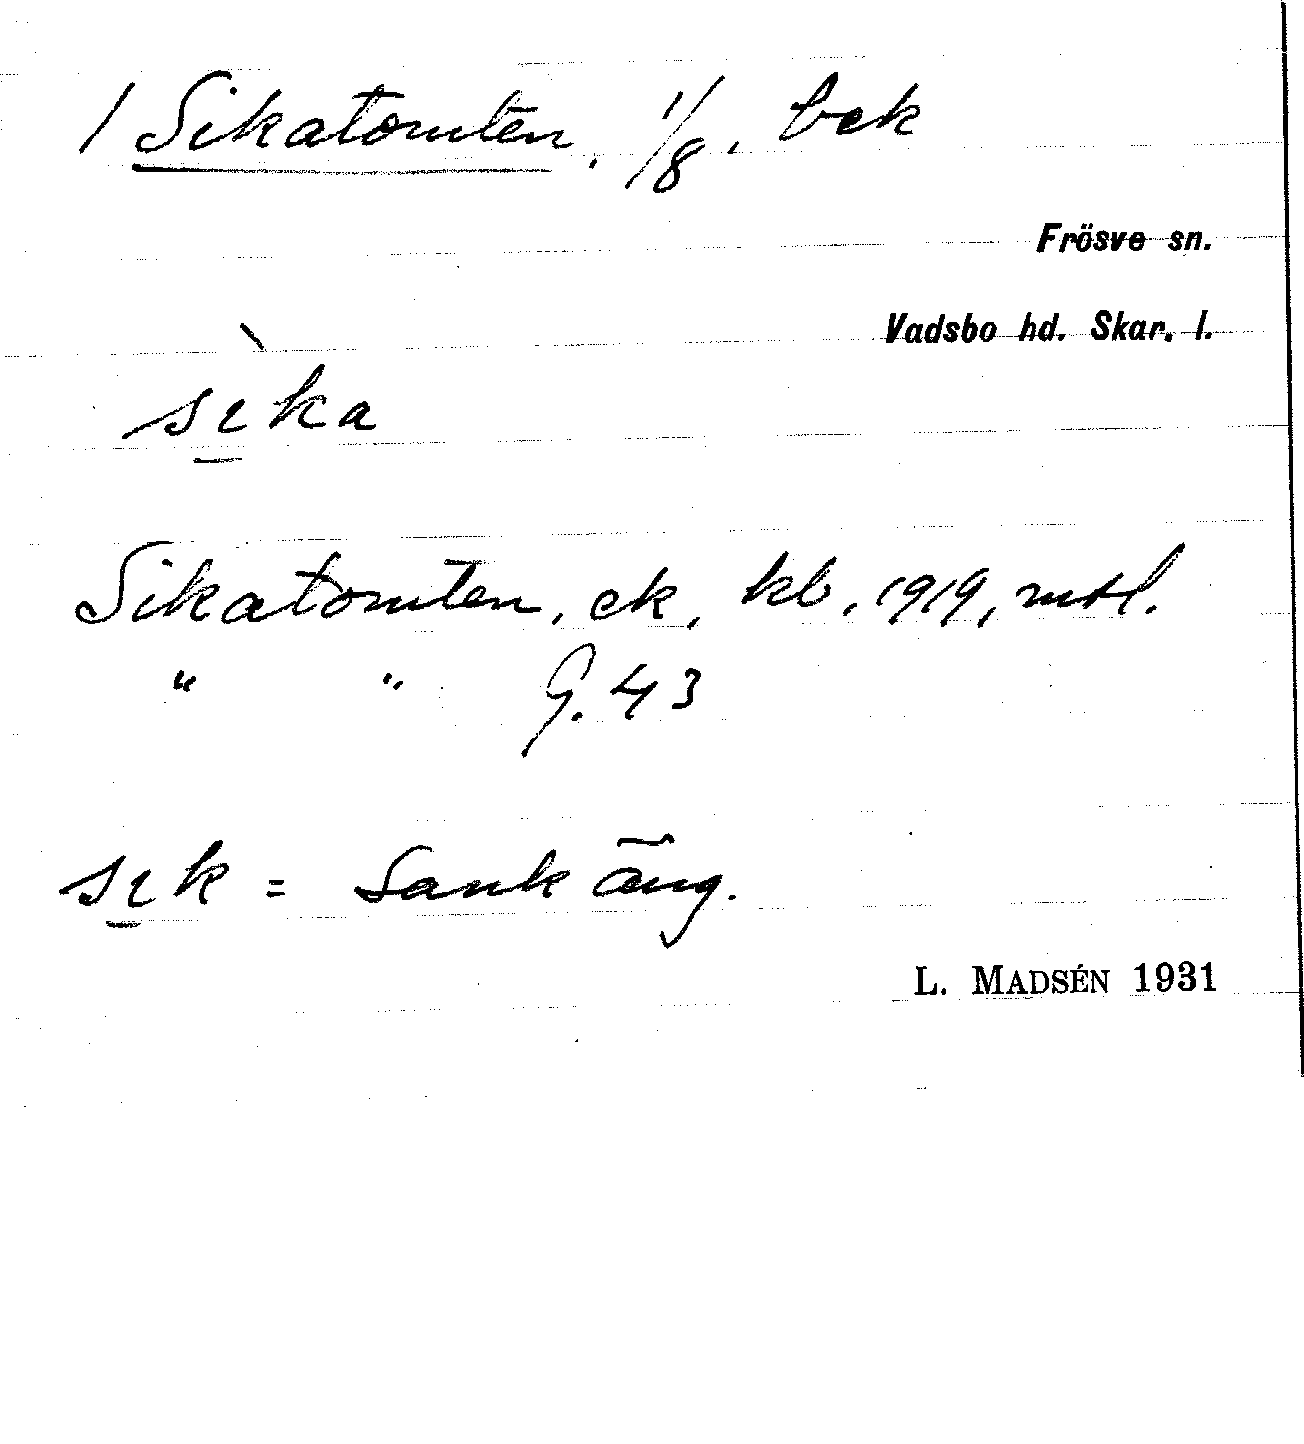 / Sikatomten, 1/8, bek
Frösve sn.
Vadsbo hd. Skar. l.
sɩ̱̀ka
Sikatomten, ek, kb, 1919, mtl.
" " G. 43
sɩ̱k = Sank äng.
L. MADSÉN 1931